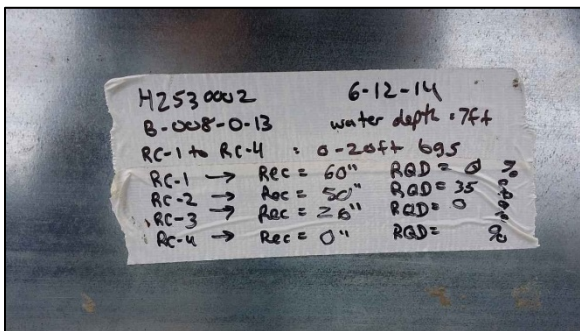 H2530002 6-12-14
B-008-0-13 water depth = 7ft
RC-1 to RC-4 : 0-20ft bgs
RC-1 → Rec = 60" RQD = 0 %
RC-2 → Rec = 50" RQD = 35 %
RC-3 → Rec = 26" RQD = 0 %
RC-4 → Rec = 0" RQD = %